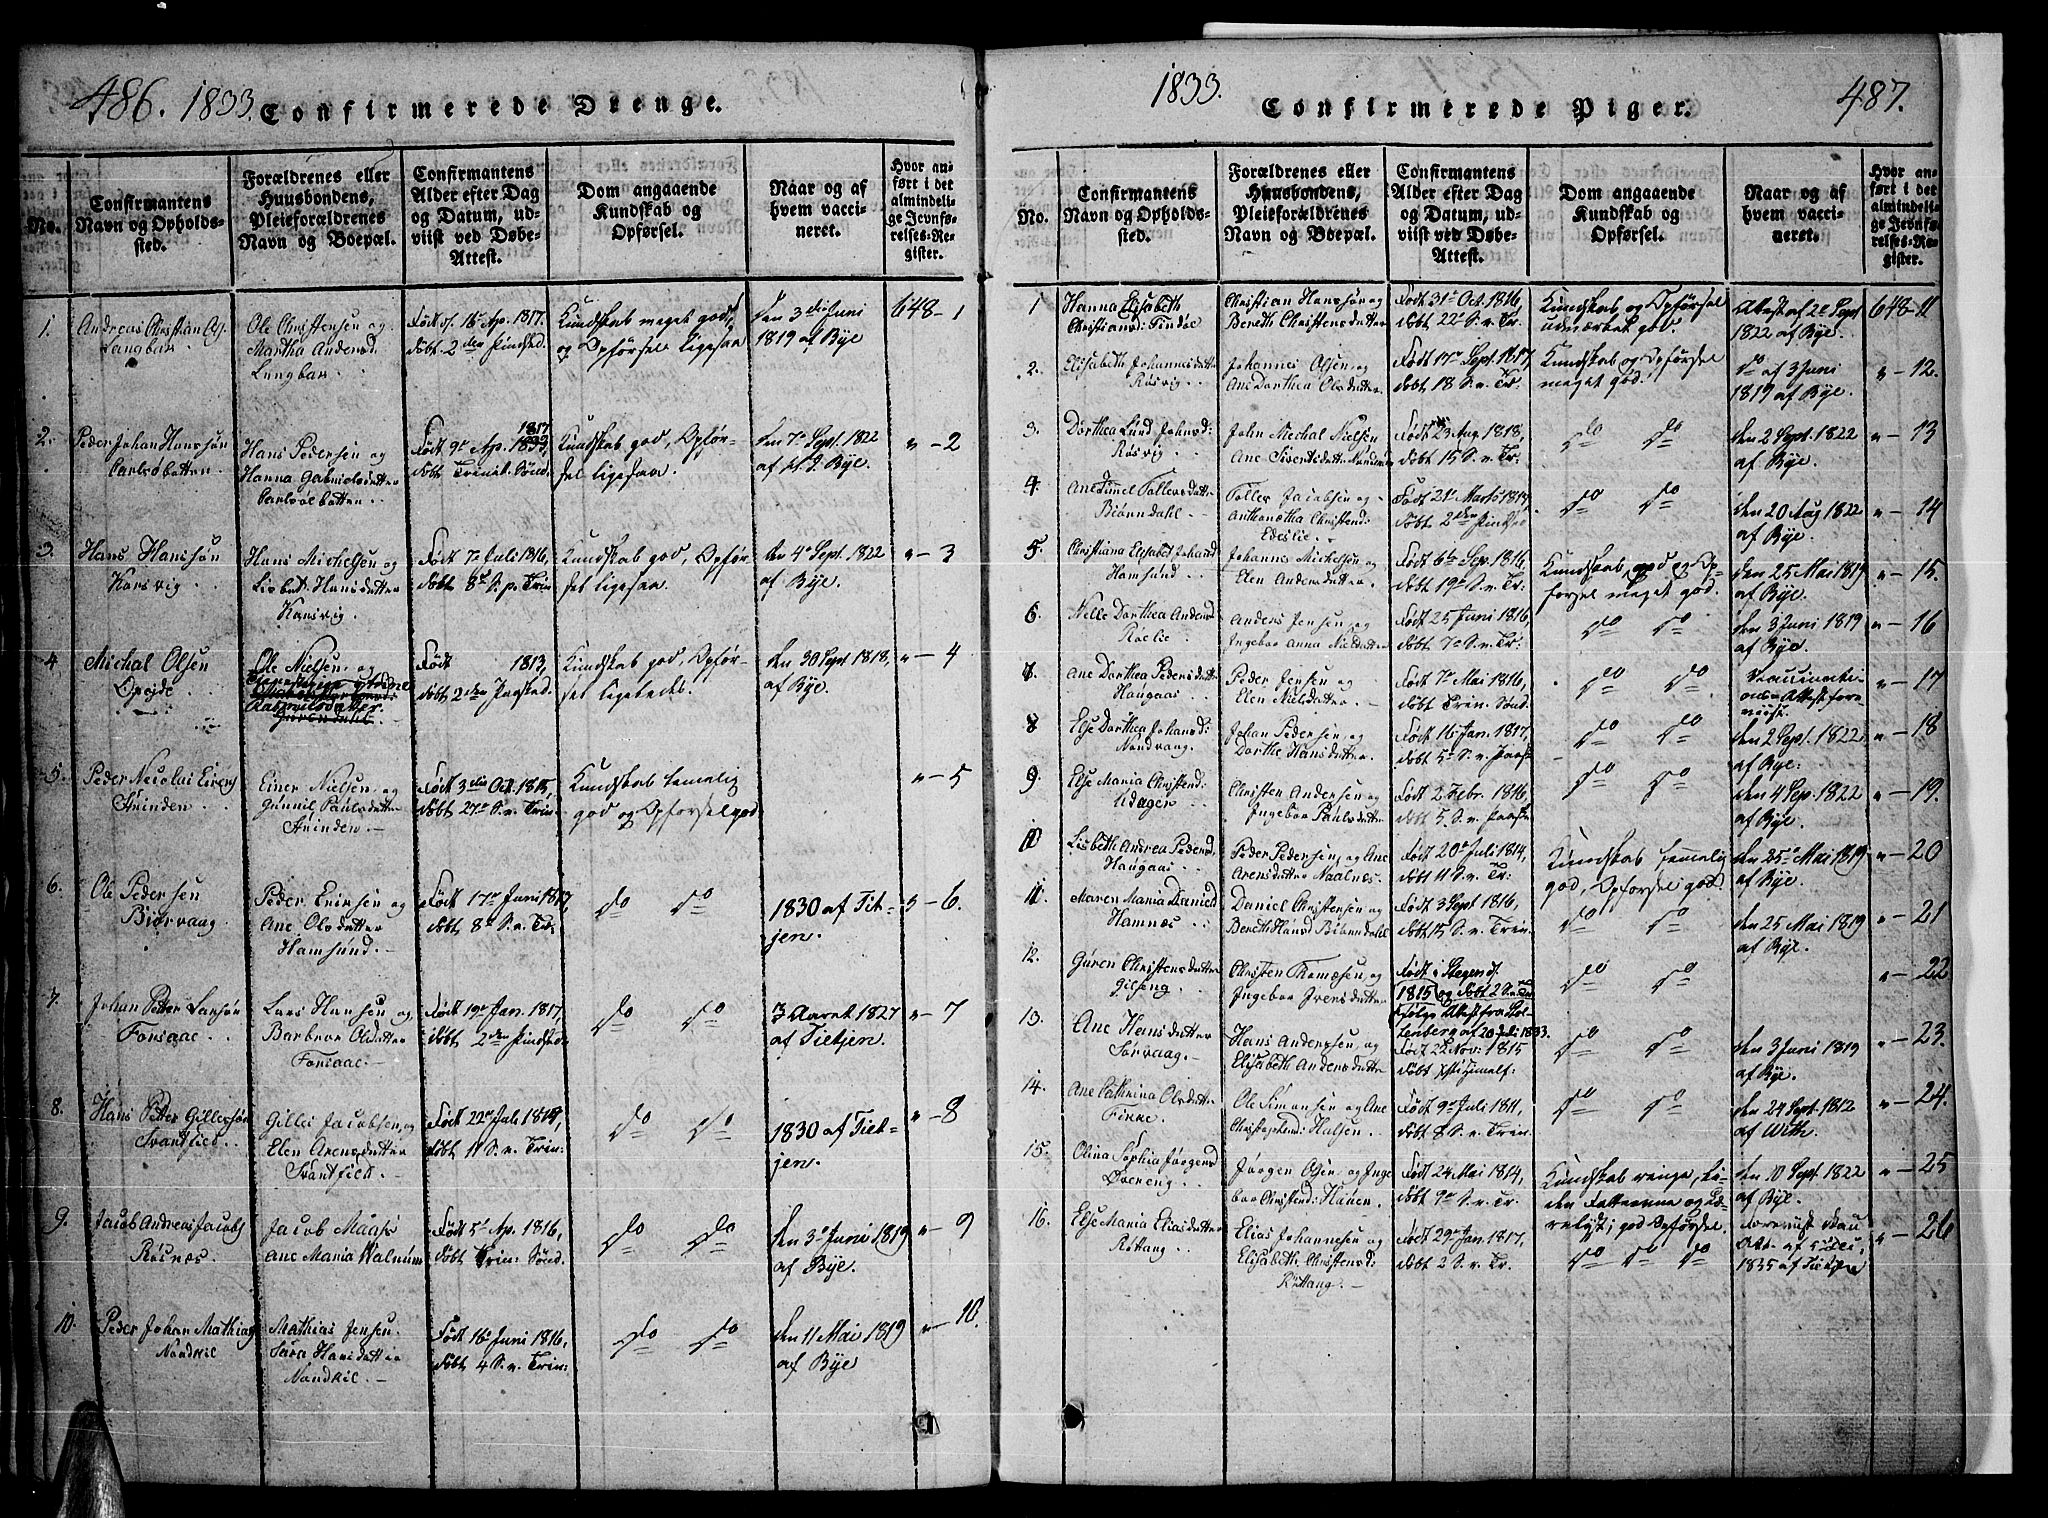 486. 1833. Confirmerede Drenge.
No.
Confirmantens
Navn og Opholds-
sted.
Forældrenes eller
Huusbondens,
Pleieforældrenes
Navn og Boepæl.
Confirmantens
Alder efter Dag
og Datum, ud-
viist ved Døbe-
Attest.
Dom angaaende
Kundskab og
Opførsel.
Naar og af
hvem vacci-
neret.
Hvor an-
ført i det
almindelige
Jevnfø-
relses-Re-
gister.
1.
Andreas Christian
Langbak
Ole Christensen og
Martha Andersd
Langbak
Født d. 16 Ap. 1817.
døbt 2den Pindsed.
Kundskab meget god
og Opførsel ligesaa
Den 3die Juni
1819 af Bye
648-1
2.
Peder Johan Hanssøn
Carlsøbotten
Hans Pedersen og
Hanna Gabrielsdatter
Carlsølbotten
1817
Født 9de Ap. 1833
døbt Trinit. Sønd.
Kundskab god, Opfør-
sel ligesaa.
den 7de Sept. 1822
af Bye.
" - 2
3.
Hans Hanssøn
Kansvig
Hans Michelsen og
Lisbet Hansdatter
Kansvig
Født 7de Juli 1816,
døbt 8de S. p. Trin
Kundskab god, Opfør-
sel ligesaa
den 4de Sept. 1822
af Bye.
" - 3
4
Michal Olsen
Opeide
Ole Nielsen og
Født 1813,
døbt 2den Pindsed.
Kundskab god, Opfør-
sel ligeledes.
den 30 Sept 1818,
af Bye.
" - 4
5.
Peder Nicolai Einers
Stinden
Einer Nielsen og
Gunnil Paulsdatter
Stinden
Født 3die Oct. 1815,
døbt 27de S. e. Trin
Kundskab temelig
god og Opførsel god
" - 5
6.
Ole Pedersen
Biørvaag
Peder Erichsen og
Ane Olsdatter
Hamsund
Født 17de Juni 1817,
døbt 8de S. e. Tr.
do do
1830 af Tiet-
jen.
" - 6.
7.
Johan Petter Larssøn
Forsaae
Lars Hansen og
Barbroe Olsdatter
Forsaae
Født 19de Jan. 1817,
døbt 2den Pindsed.
do do
I Aaret 1827
af Tietjen.
" - 7
8.
Hans Petter Gillessøn
Svartlied
Gilles Jacobsen og
Elen Arensdatter
Svartlied
Født 22de Juli
døbt 11 S. e. Trin:
do do
1830 af Tiet-
jen.
" - 8
9.
Jacob Andreas Jacobs
Røsnes
Jacob Maass
Ane Maria Walnum
Født 5te Ap. 1816,
døbt Trin: Sønd.
do do
Den 3de Juni 1819
af Bye.
" - 9
10.
Peder Johan Mathias
Nordkil
Mathias Jensen
Sara Hansdatter
Nordkil
Født 16de Juni 1816,
døbt 4 S. e. Trin:
do do
den 11 Mai 1819
af Bye
" - 10.
1833. Confirmerede Piger. 487.
No.
Confirmantens
Navn og Opholds-
sted.
Forældrenes eller
Huusbondens,
Pleieforældrenes
Navn og Boepæl.
Confirmantens
Alder efter Dag
og Datum, ud-
viist ved Døbe-
Attest.
Dom angaaende
Kundskab og
Opførsel.
Naar og af
hvem vacci-
neret.
Hvor an-
ført i det
almindeli-
ge Jevnfø-
relses-Re-
gister.
1
Hanna Elisabeth
Christiansd: Tindøe
Christian Hanssøn og
Bereth Christensdatter
Født 31te Oct. 1816
døbt 22de S. e. Tr.
Kundskab og Opførsel
udmærket god
Attest af 2 Sept
1822 af Bye.
648-11
2.
Elisabeth Johannesdatter
Røsvig
Johannes Olsen og
Ane Dorthea Olsdatter
Født 17de Sept. 1817,
døbt 18 S. e. Tr:
Kundskab og Opførsel
meget god.
do af 3 Juni
1819 af Bye.
" - 12.
3.
Dorthea Lund Johnsd:
Røsvig
John Michal Nielsen
Ane Sivertsdatter
Født 23 Aug. 1818,
døbt 15 S. e. Tr:
do do
den 2 Sept. 1822
af Bye.
" - 13
4
Tollersdatter
Biørndahl
Toller Jacobsen og
Christend:
Født 21de Marts 1817,
døbt 2den Pindsed
do do
den 20 Aug 1822
af Bye.
" - 14
5.
Christiana Elisabet Johansd
Hamsund
Johannes Michelsen og
Elen Andersdatter
Født 6te Sep. 1816,
døbt 19de S. e. Tr:
Kundskab god og Op-
førsel meget god.
den 25 Mai 1819
af Bye.
" - 15.
6.
Nelle Dorthea Andersd
Røelie
Anders Jensen og
Ingebor Anna Nielsdatter
Født 25 Juni 1816,
døbt 7de S. e. Tr:
do do
den 3 Juni 1819
af Bye.
" - 16
7
Ane Dorthea Pedersdatter
Haugaas
Peder Jensen og
Elen Nielsdatter
Født 7de Mai 1816,
døbt Trin. Sønd.
do do
Vaccinati-
ons-Attest fore-
viist.
" - 17
8
Else Dorthea Johansd:
Nordvaag
Johan Pedersen og
Dorthe Hansdatter
Født 16 Jan. 1817,
døbt 5te S. e. Paaske
do do
den 2 Sept. 1822
af Bye.
" - 18
9.
Else Maria Christend:
Uldager
Christen Andersen og
Ingebor Paulsdatter
Født 2 Febr. 1816,
døbt 5. S. e. Paaske
do do
den 4 Sep. 1822
af Bye.
" - 19.
10
Lisbeth Andrea Pedersd,
Haugaas
Peder Pedersen og Ane
Arensdatter Naalnes.
Født 20de Juli 1814,
døbt 11 S. e. Tr:
Kundskab temelig
god, Opførsel god.
den 25de Mai 1819
af Bye.
" - 20
11.
Maren Maria Danield
Hamnes
Daniel Christensen og
Bereth Hansd Biørndahl
Født 3 Sept 1816,
døbt 15 S. e. Trin
do do
den 25 Mai 1819
af Bye.
" - 21
12.
Guren Christensdatter
Gilseng
Christen Thomesen og
Ingebor Iversdatter
Født i Stegen d.
1815 og døbt 2 S. e.
følge Attest fra
af 20 Juli 1833.
do do
" - 22
13.
Ane Hansdatter
Sørvaag
Hans Andersen og
Elisabeth Andersdatter
Født 22 Nov: 1815
døbt
do do
den 3 Juni 1819
af Bye.
" - 23.
14.
Ane Cathrina Olsdatter
Finke
Ole Simonsen og Ane
Christophersd: Halsen
Født 9de Juli 1811,
døbt 8 S. e. Trin:
do do
den 24 Sept. 1812
af With.
" - 24.
15.
Olina Sophia Jørgensd
Øvereng
Jørgen Olsen og Inge
bor Christensd: Hunen
Født 24 Mai 1814,
døbt 7de S. e. Tr.
Kundskab ringe, Li-
den Fatteevne og Læ-
relyst; god Opførsel.
den 10 Sept. 1822
af Bye
" - 25
16.
Else Maria Eliasdatter
Røttang
Elias Johannesen og
Elisabeth Christensd:
Røttang
Født 29de Jan. 1817,
døbt 2 S. e. Tr.
do do do
1835 af Tietjen
" - 26